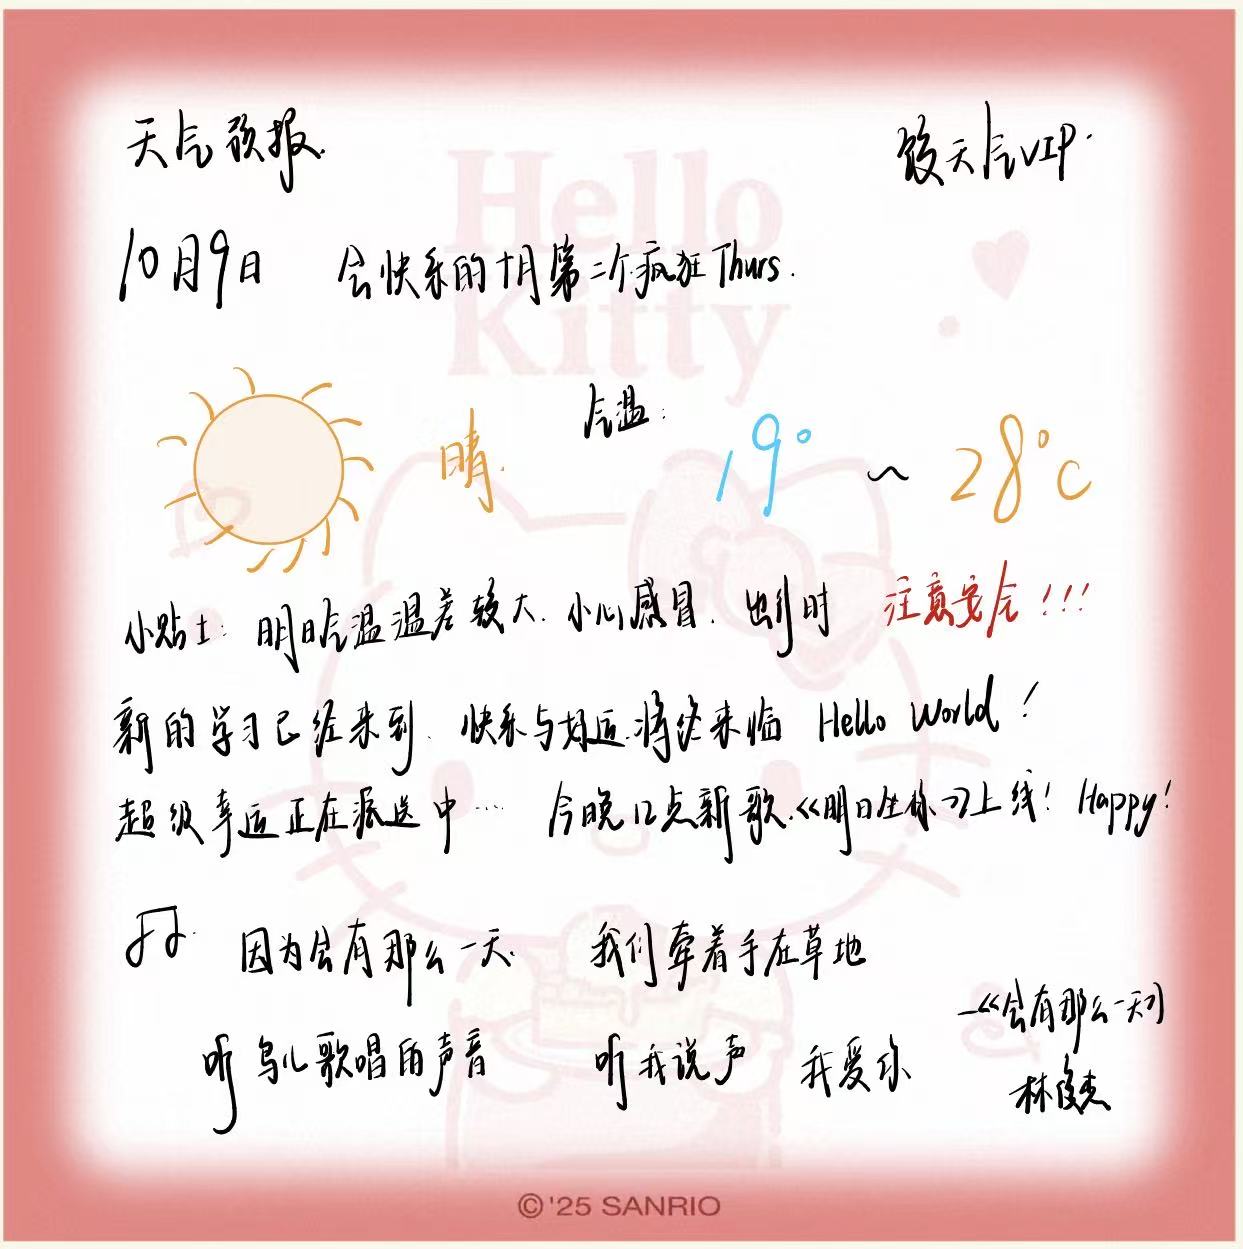 天气预报.
天气VIP.
10月9日 会快乐的十月第二个疯狂Thurs.
Hello
Kitty
晴. 气温: 19° ~ 28°C
小贴士: 明日气温温差较大. 小心感冒. 出行时 注意安全!!!
新的学习已经来到. 快乐与好运.将终来临 Hello World!
超级幸运正在派送中… 今晚12点新歌.《明日坐标》上线! Happy!
因为会有那么一天. 我们牵着手在草地
听鸟儿歌唱的声音 听我说声 我爱你
—《会有那么一天》
林俊杰
©'25 SANRIO